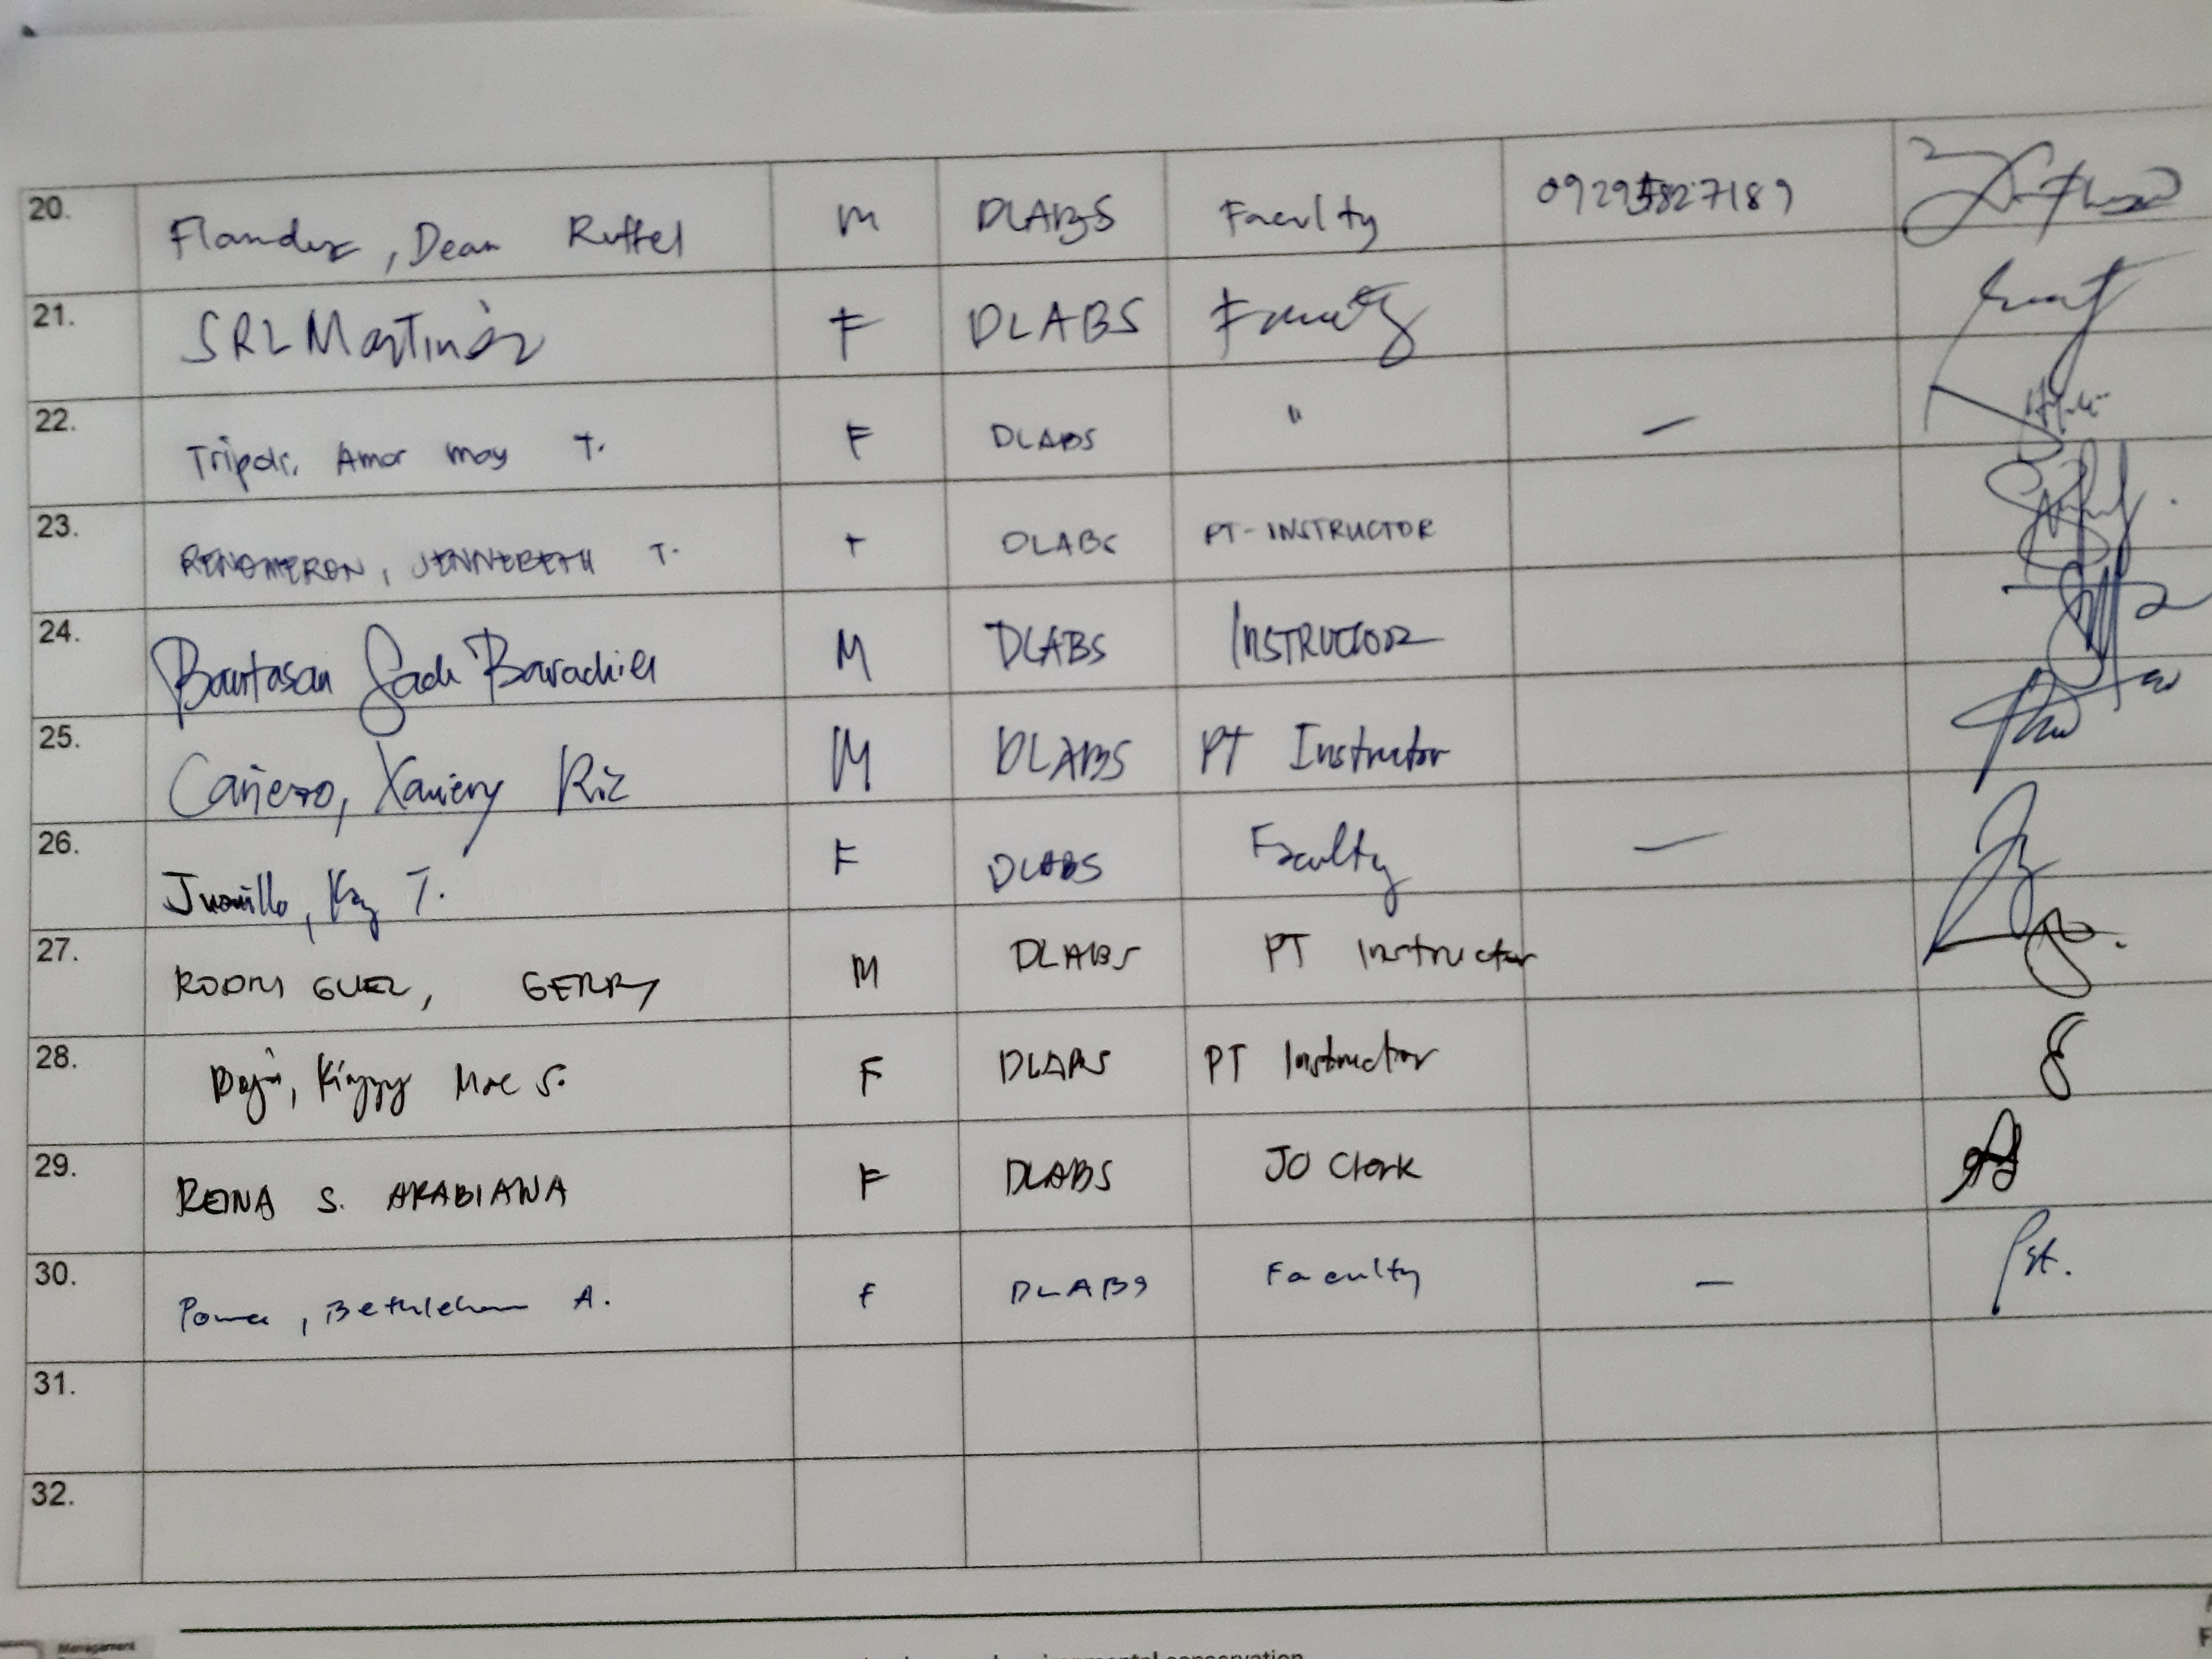 20. Flandez, Dean Ruffel M DLABS Faculty
21. SRL Martinez F DLABS Faculty
22. Tripoli, Amor may T. F DLABS " —
23. RENOMERON, JENNEBETH T. F DLABS PT-INSTRUCTOR
24. Bantasan Jade Barachiel M DLABS INSTRUCTOR
25. Cañezo, Xaviery Riz M DLABS PT Instructor
26. Juanillo, Kay T. F DLABS Faculty —
27. RODRIGUEZ, GERRY M DLABS PT Instructor
28. Kinzzy Mae S. F DLABS PT Instructor
29. REINA S. ARABIANA F DLABS JO Clerk
30. Bethlehem A. F DLABS Faculty —
31.
32.
Management
environmental conservation